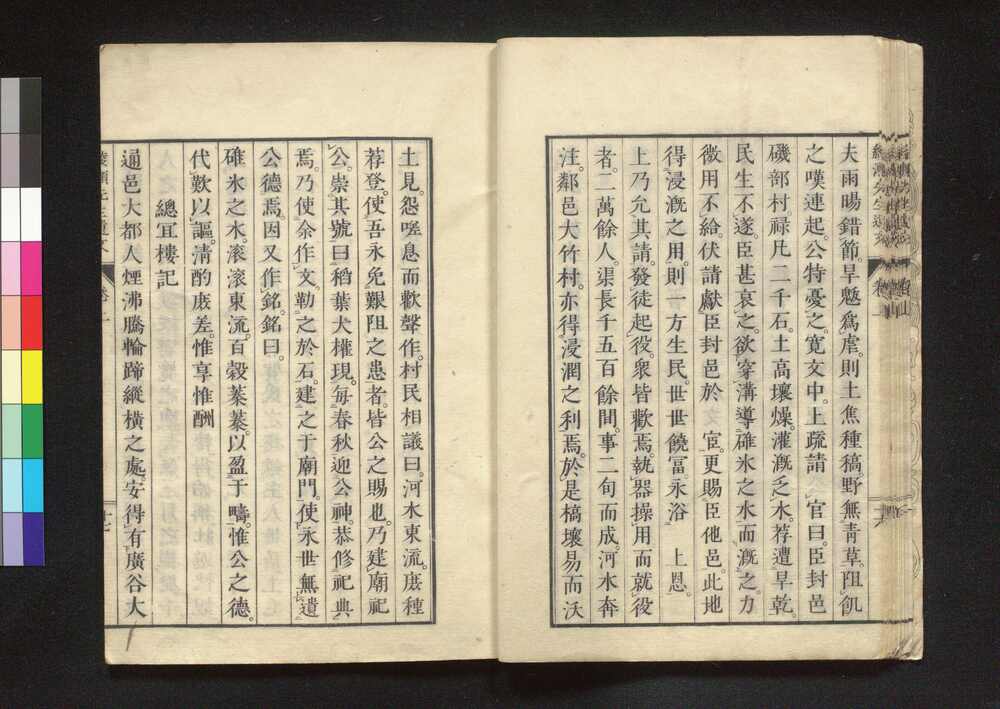 夫雨暘錯節。旱魃爲虐。則土焦種稿。野無青草。阻飢
之嘆連起。公特憂之。寛文中。上疏請　官曰。臣封邑
磯部村。祿凡二千石。土高壤燥。灌漑乏水。荐遭旱乾。
民生不遂。臣甚哀之。欲穿溝導碓氷之水而漑之。力
微用不給。伏請獻臣封邑於　官。更賜臣他邑。此地
得浸漑之用。則一方生民。世世饒冨。永浴　上恩。
上乃允其請。發徒起役。衆皆歡焉。執器操用而就役
者。二萬餘人。渠長千五百餘間。事二旬而成。河水奔
注。鄰邑大竹村。亦得浸潤之利焉。於是槁壤易而沃
土見。怨嗟息而歡聲作。村民相議曰。河水東流。庶種
荐登。使吾永免艱阻之患者。皆公之賜也。乃建廟祀
公。崇其號曰稻葉犬權現。每春秋迎公神。恭修祀典
焉。乃使余作文。勒之於石。建之于廟門。使永世無遺
公德焉。因又作銘。銘曰。
碓氷之水。滾滾東流。百穀蓁蓁。以盈于疇。惟公之德。
代歎以謳。淸酌庶羞。惟享惟酬
總宜樓記
通邑大都人煙沸騰輪蹄縱橫之處。安得有廣谷大